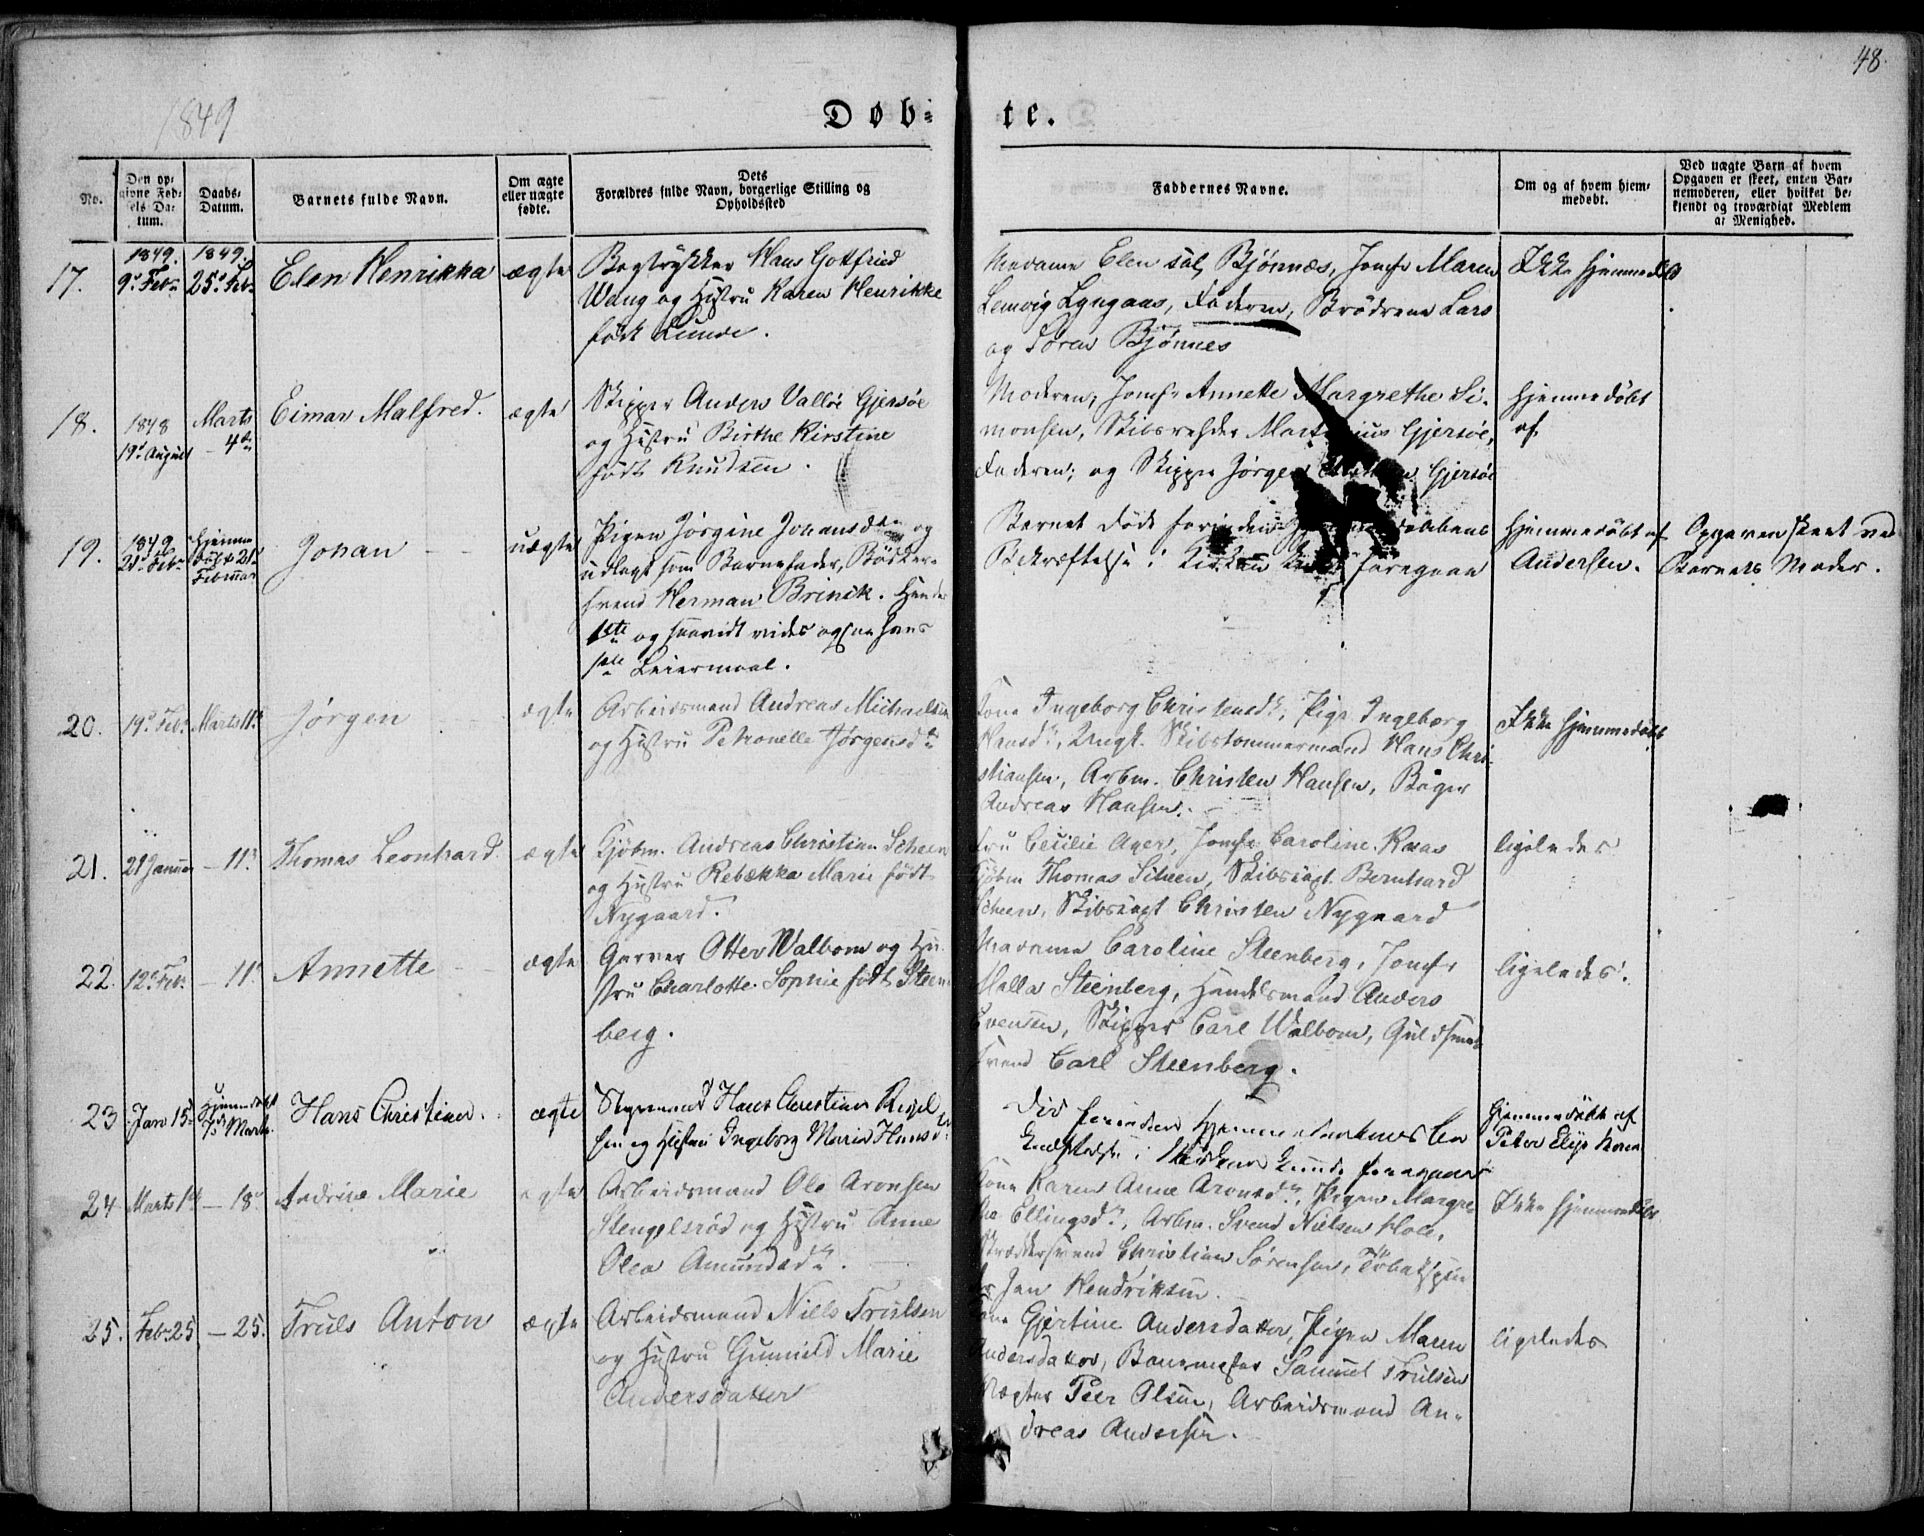 48.
1849
Døb-
te.
No.
Den op-
givne Fød-
sels Da-
tum.
Daabs-
Datum.
Barnets fulde Navn.
Om ægte
eller uægte
fødte.
Dets
Forældres fulde Navn, borgerlige Stilling og
Opholdssted
Faddernes Navne.
Om og af hvem hjem-
medøbt.
Ved uægte Børn af hvem
Opgaven er skeet, enten Bar-
nemoderen, eller hvilket be-
kjendt og troværdigt Medlem
af Menighed.
17.
1849.
9de Febr.
1849.
25de Febr.
Elen Henrikka
ægte
Bogtrykker Hans Gottfried
Wang og Hustru Karen Henrikke
født Lunde.
Madame Elen sal. Bjönnæs, Jomfr Maren
Lemvig Lyngaas, Faderen, Brödrene Lars
og Søren Bjönnes
Ikke hjemmedöbt
18.
1848
19de August
Marts
4de
Eimar Malfred.
ægte
Skipper Anders Valløe Gjersøe
og Hustru Birthe Kirstine
født Knudsen.
Moderen, Jomfr Annette Margrethe Si-
monsen, Skibsrheder Gjersøe,
Faderen, og Skipper Jørgen Gjersøe
Hjemmedöbt
af
19.
1849
21de Febr.
Hjemme
döbt 21de
Februar
Johan
uægte
Pigen Jörgine Johansdtr og
udlagt som Barnefader, Bödker-
svend Herman Brinck. Hendes
1ste og saavidt vides ogsaa hans
1ste Leiermaal.
Barnet döde forinden
Bekræftelse i Kirken foregaae
Hjemmedöbt af
Andersen.
Opgaven skeet ved
Barnets Moder.
20.
19de Febr.
Marts 11te
Jörgen
ægte
Arbeidsmand Andreas Michaelsen
og Hustru Petronelle Jørgensdtr
Kone Ingeborg Christensdtr, Pige Ingeborg
Hansdtr, Ungk. Skibstømmermand Hans Chri-
stiansen, Arbm. Christen Hansen, Bager
Andreas Hansen.
Ikke hjemmedöbt
21.
21 Januar
– 11te
Thomas Leonhard.
ægte
Kjøbm. Andreas Christian Scheen
og Hustru Rebekka Marie født
Nygaard.
Fru Cecilie Ager, Jomfr Caroline Raas
Kjøbm Thomas Scheen, Skibscapt. Bernhard
Scheen, Skibscapt Christen Nygaard
ligeledes
22.
12te Febr.
– 11te
Annette
ægte
Garver Otter Walbom og Hu-
stru Charlotte Sophie født Steen-
berg.
Madame Caroline Steenberg, Jomfr
Malla Steenberg, Handelsmand Anders
Svensen, Skipper Carl Walbom, Guldsmed
svend Carl Steenberg.
ligeledes.
23
Jan 15de
Hjemmedöbt
7de Marts.
Hans Christian.
ægte
Styrmand Hans Christian
sen og Hustru Ingeborg Maria Hansd.
Död forinden Hjemmedaabens
i Kirken kunde foregaae
Hjemmedöbt af
Peter
24
Marts 1ste
– 18de
Andrine Marie
ægte
Arbeidsmand Ole Aronsen
Stengelsrød og Hustru Anne
Olea Amundsdtr.
Kone Karen Anne Aronsdtr, Pigen Margre-
the Ellingsdtr, Arbm. Svend Nielsen Hole,
Skræddersvend Christian Sörensen, Tobakspin
der Jan Hendriksen.
Ikke hjemmedöbt
25.
Febr 25
– 25.
Truls Anton
ægte
Arbeidsmand Niels Trulsen
og Hustru Gunnild Marie
Andersdatter
Kone Gjertine Andersdatter, Pigen Maren
Andersdatter, Samuel Trulsen
Peer Olsen, Arbeidsmand An-
dreas Andersen.
ligeledes